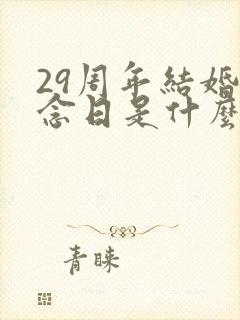 29周年結婚
念日是什麼
青睐